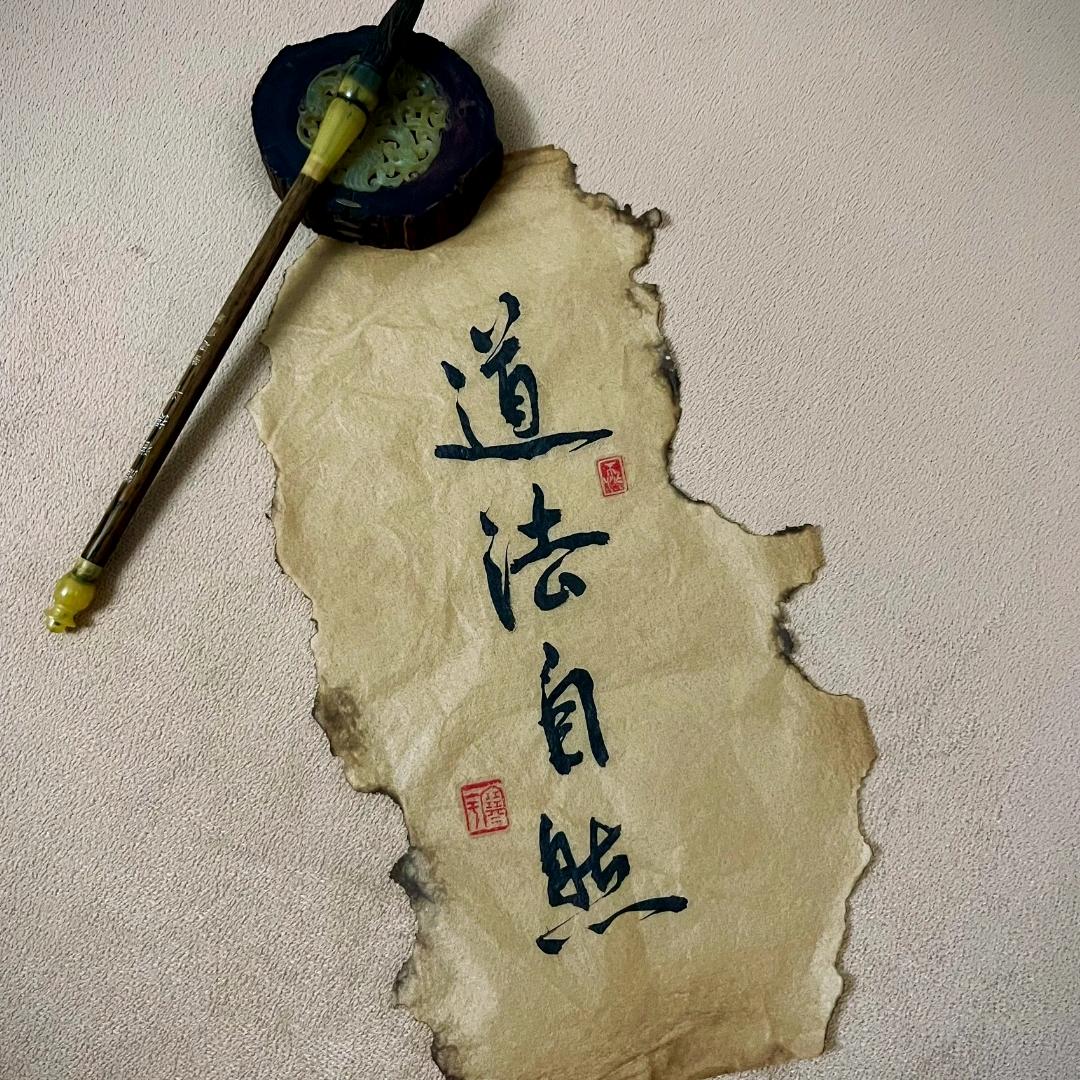 道法自然